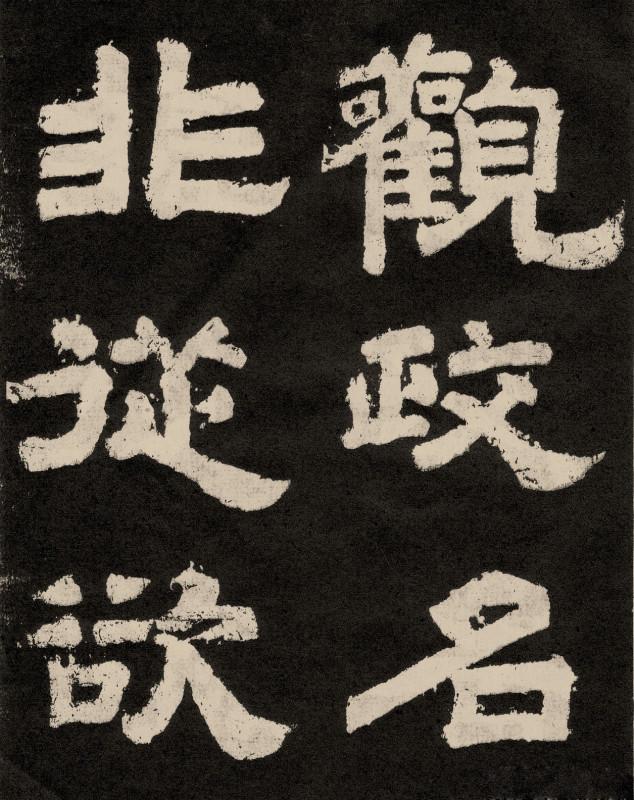 觀政名
非從欲